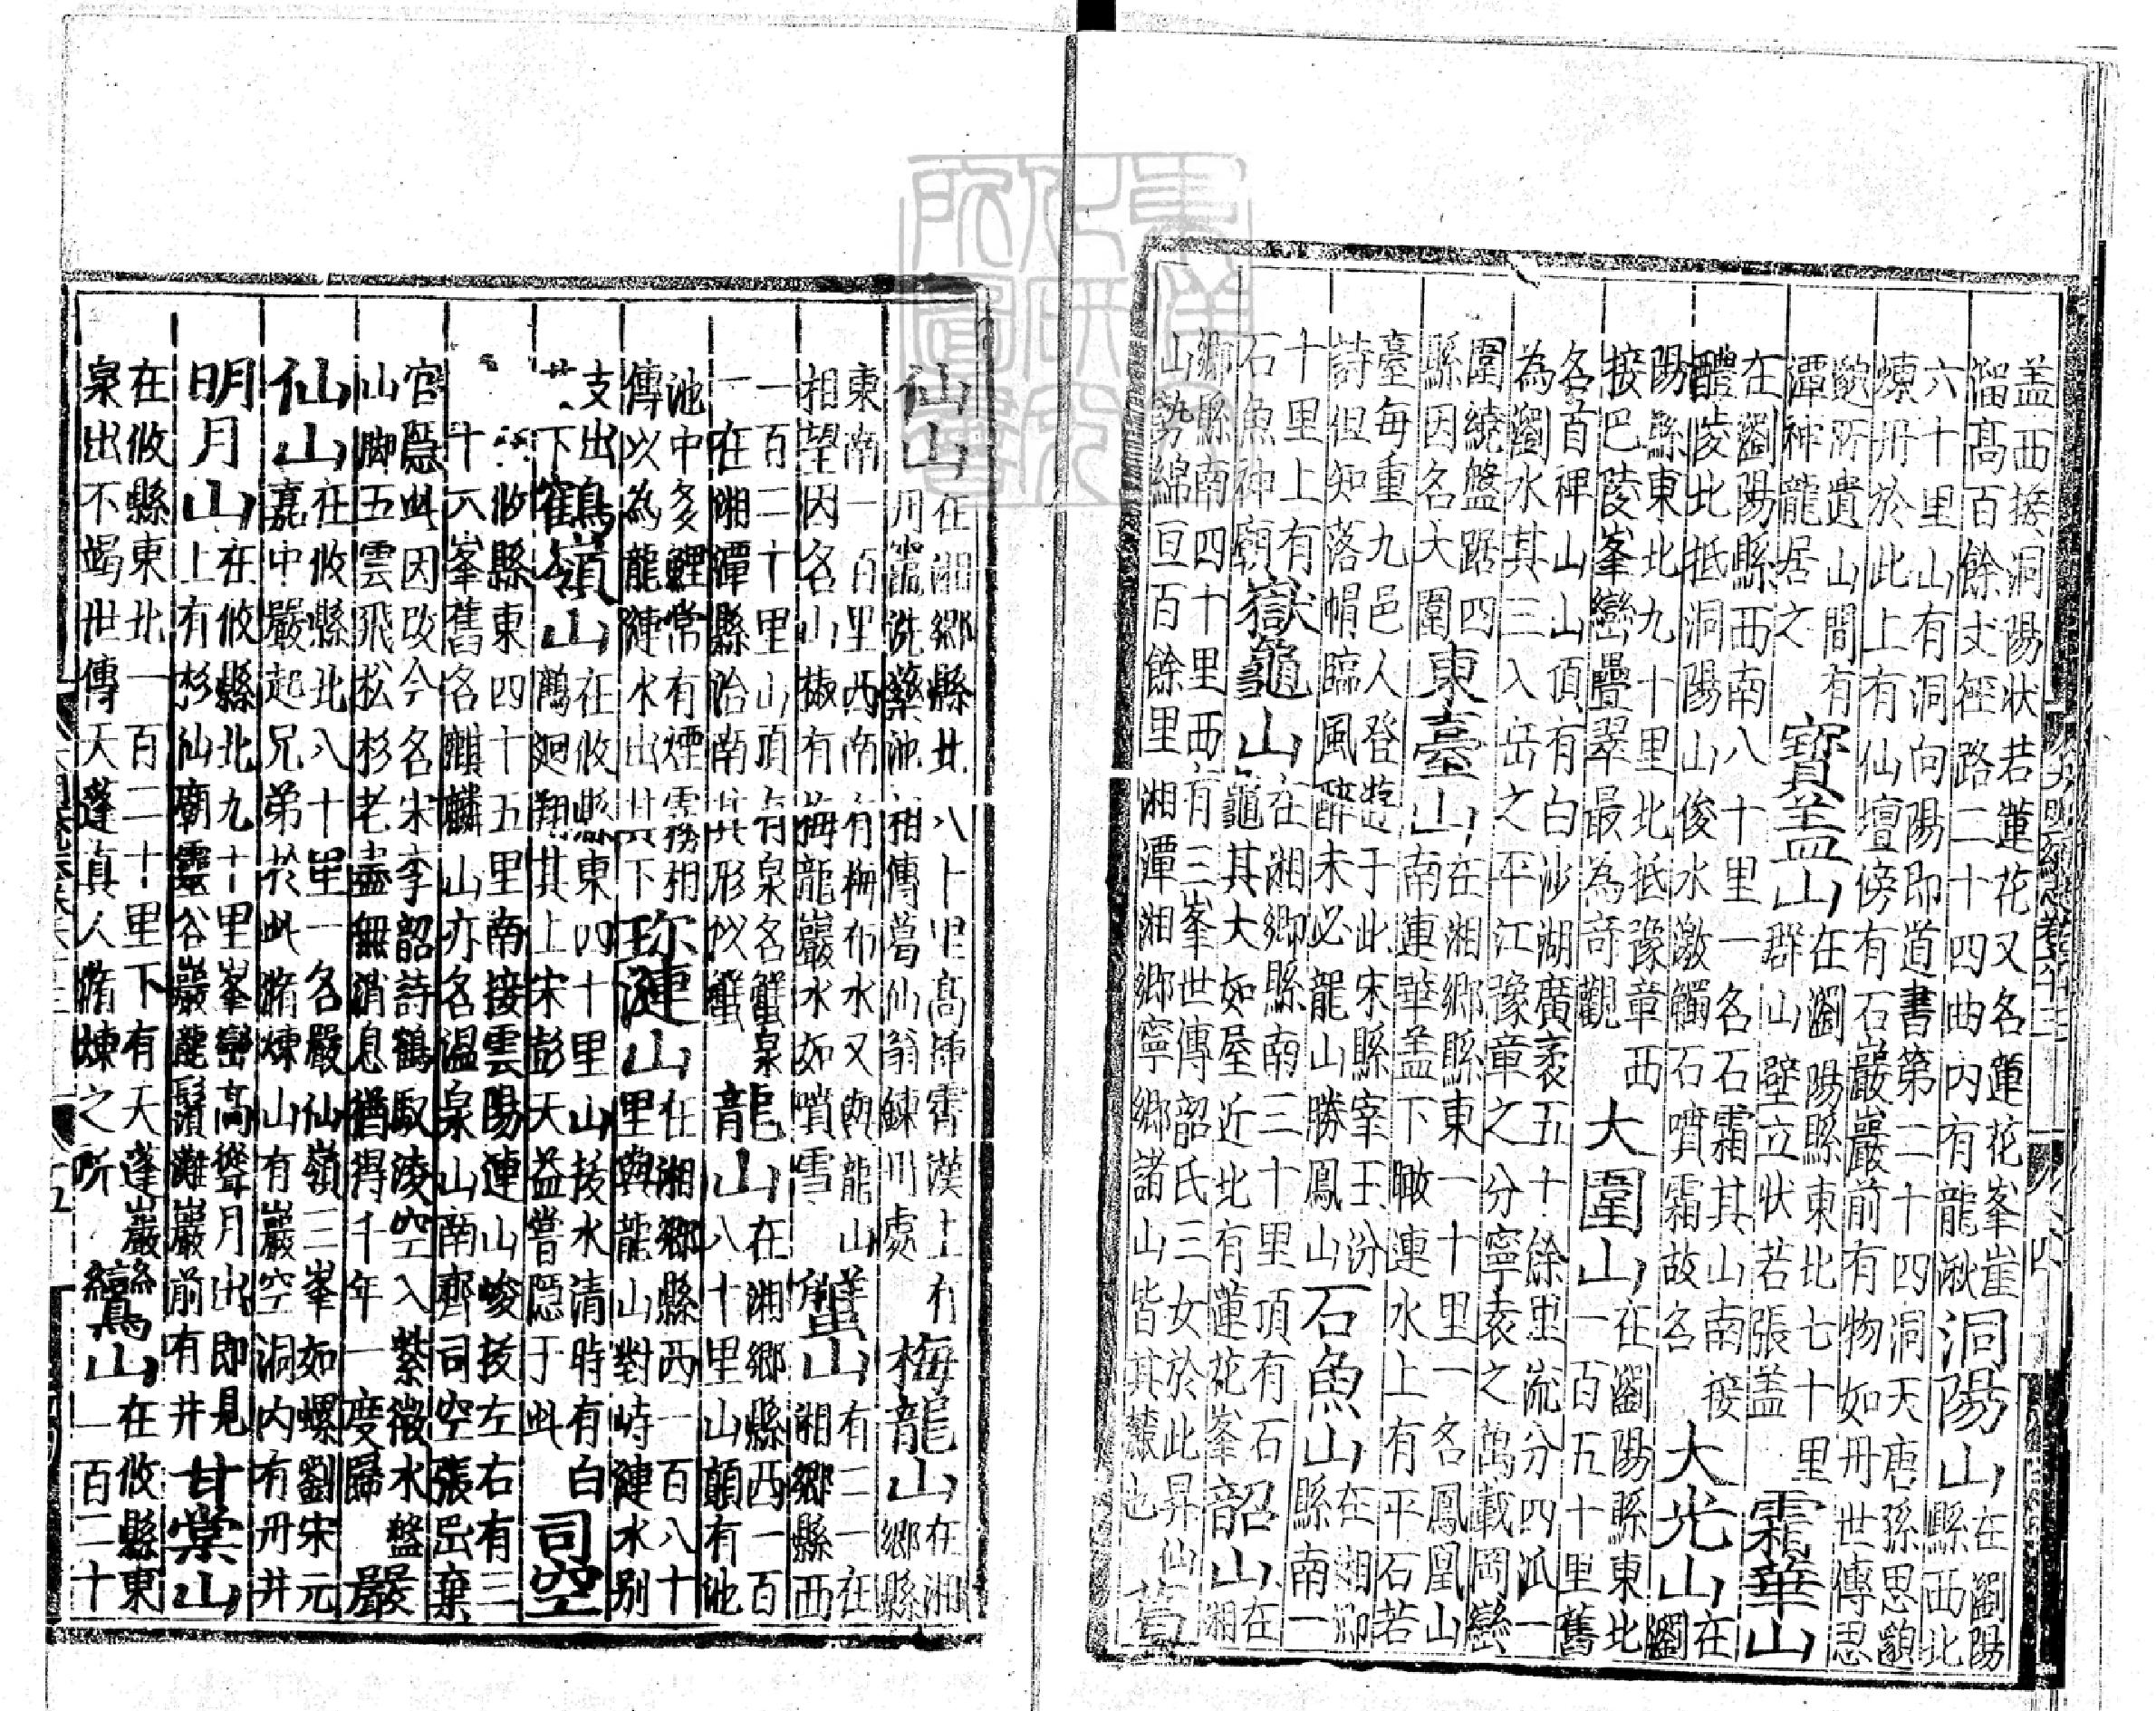 盖西接洞陽状若蓮花又名蓮花峯崖
溜高百餘丈徑路二十四曲内有龍湫洞陽山在瀏陽
縣西北
六十里山有洞向陽即道書第二十四洞天唐孫思邈
煉丹於此上有仙壇傍有石巖巖前有物如丹世傳思
邈所遺山間有
潭神龍居之寶盖山在瀏陽縣東北七十里
群山壁立状若張盖霜華山
在瀏陽縣西南八十里一名石霜其山南接
醴陵北抵洞陽山俊水激觸石噴霜故名大光山在
瀏
陽縣東北九十里北抵豫章西
接巴陵峯巒疊翠最為竒觀大圍山在瀏陽縣東北
一百五十里舊
名首禆山山頂有白沙湖廣袤五十餘里流分四派一
為瀏水其三入岳之平江豫章之分寧袁之萬載岡巒
圍繞盤踞四
縣因名大圍東臺山在湘郷縣東一十里一名鳳凰山
南連華盖下瞰連水上有平石若
臺每重九邑人登遊于此宋縣宰王汾
詩但知落帽臨風醉未必龍山勝鳳山石魚山在湘郷
縣南一
十里上有
石魚神廟嶽龜山在湘郷縣南三十里頂有石
龜其大如屋近北有蓮花峯韶山在
湘
郷縣南四十里西有三峯世傳韶氏三女於此昇仙
山勢綿亘百餘里湘潭湘郷寧郷諸山皆其麓也葛
仙山在湘郷縣 八十里高揷霄漢上有
洗藥池相傳葛仙翁鍊丹處梅龍山在湘
郷縣
東南一百里西南有 布水又與龍山
相望因名山椒有梅龍巖水如噴雪 山有二一在
湘郷縣西
一百二十里山頂有泉名蟹泉
一在湘潭縣治南其形似蟹龍山在湘郷縣西一百
八十里山顛有池
池中多鯉常有煙霧相
傳以為龍漣水出其下珎漣山在湘郷縣西一百八十
里與龍山對峙漣水别
支出
其下鶴嶺山在攸縣東四十里山接水清時有白
鶴廻翔其上宋彭天益嘗隱于此司空
攸縣東四十五里南接雲陽連山峻接左右有三
十六峯舊名麒麟山亦名温泉山南齊司空張岊棄
官隱此因改今名宋李韶詩鶴馭凌空入紫微水盤
山脚五雲飛松杉老盡無消息猶得千年一度歸嚴
仙山在攸縣北八十里一名嚴仙嶺三峯如螺劉宋元
嘉中嚴起兄弟於此脩煉山有巖空洞内有丹井
明月山在攸縣北九十里峯巒高聳月出即見
上有杉仙廟靈谷巖龍鬚灘巖前有井甘棠山
在攸縣東北一百二十里下有天蓬巖
泉出不竭世傳天蓬真人脩煉之所鸞山在攸縣東
一百二十